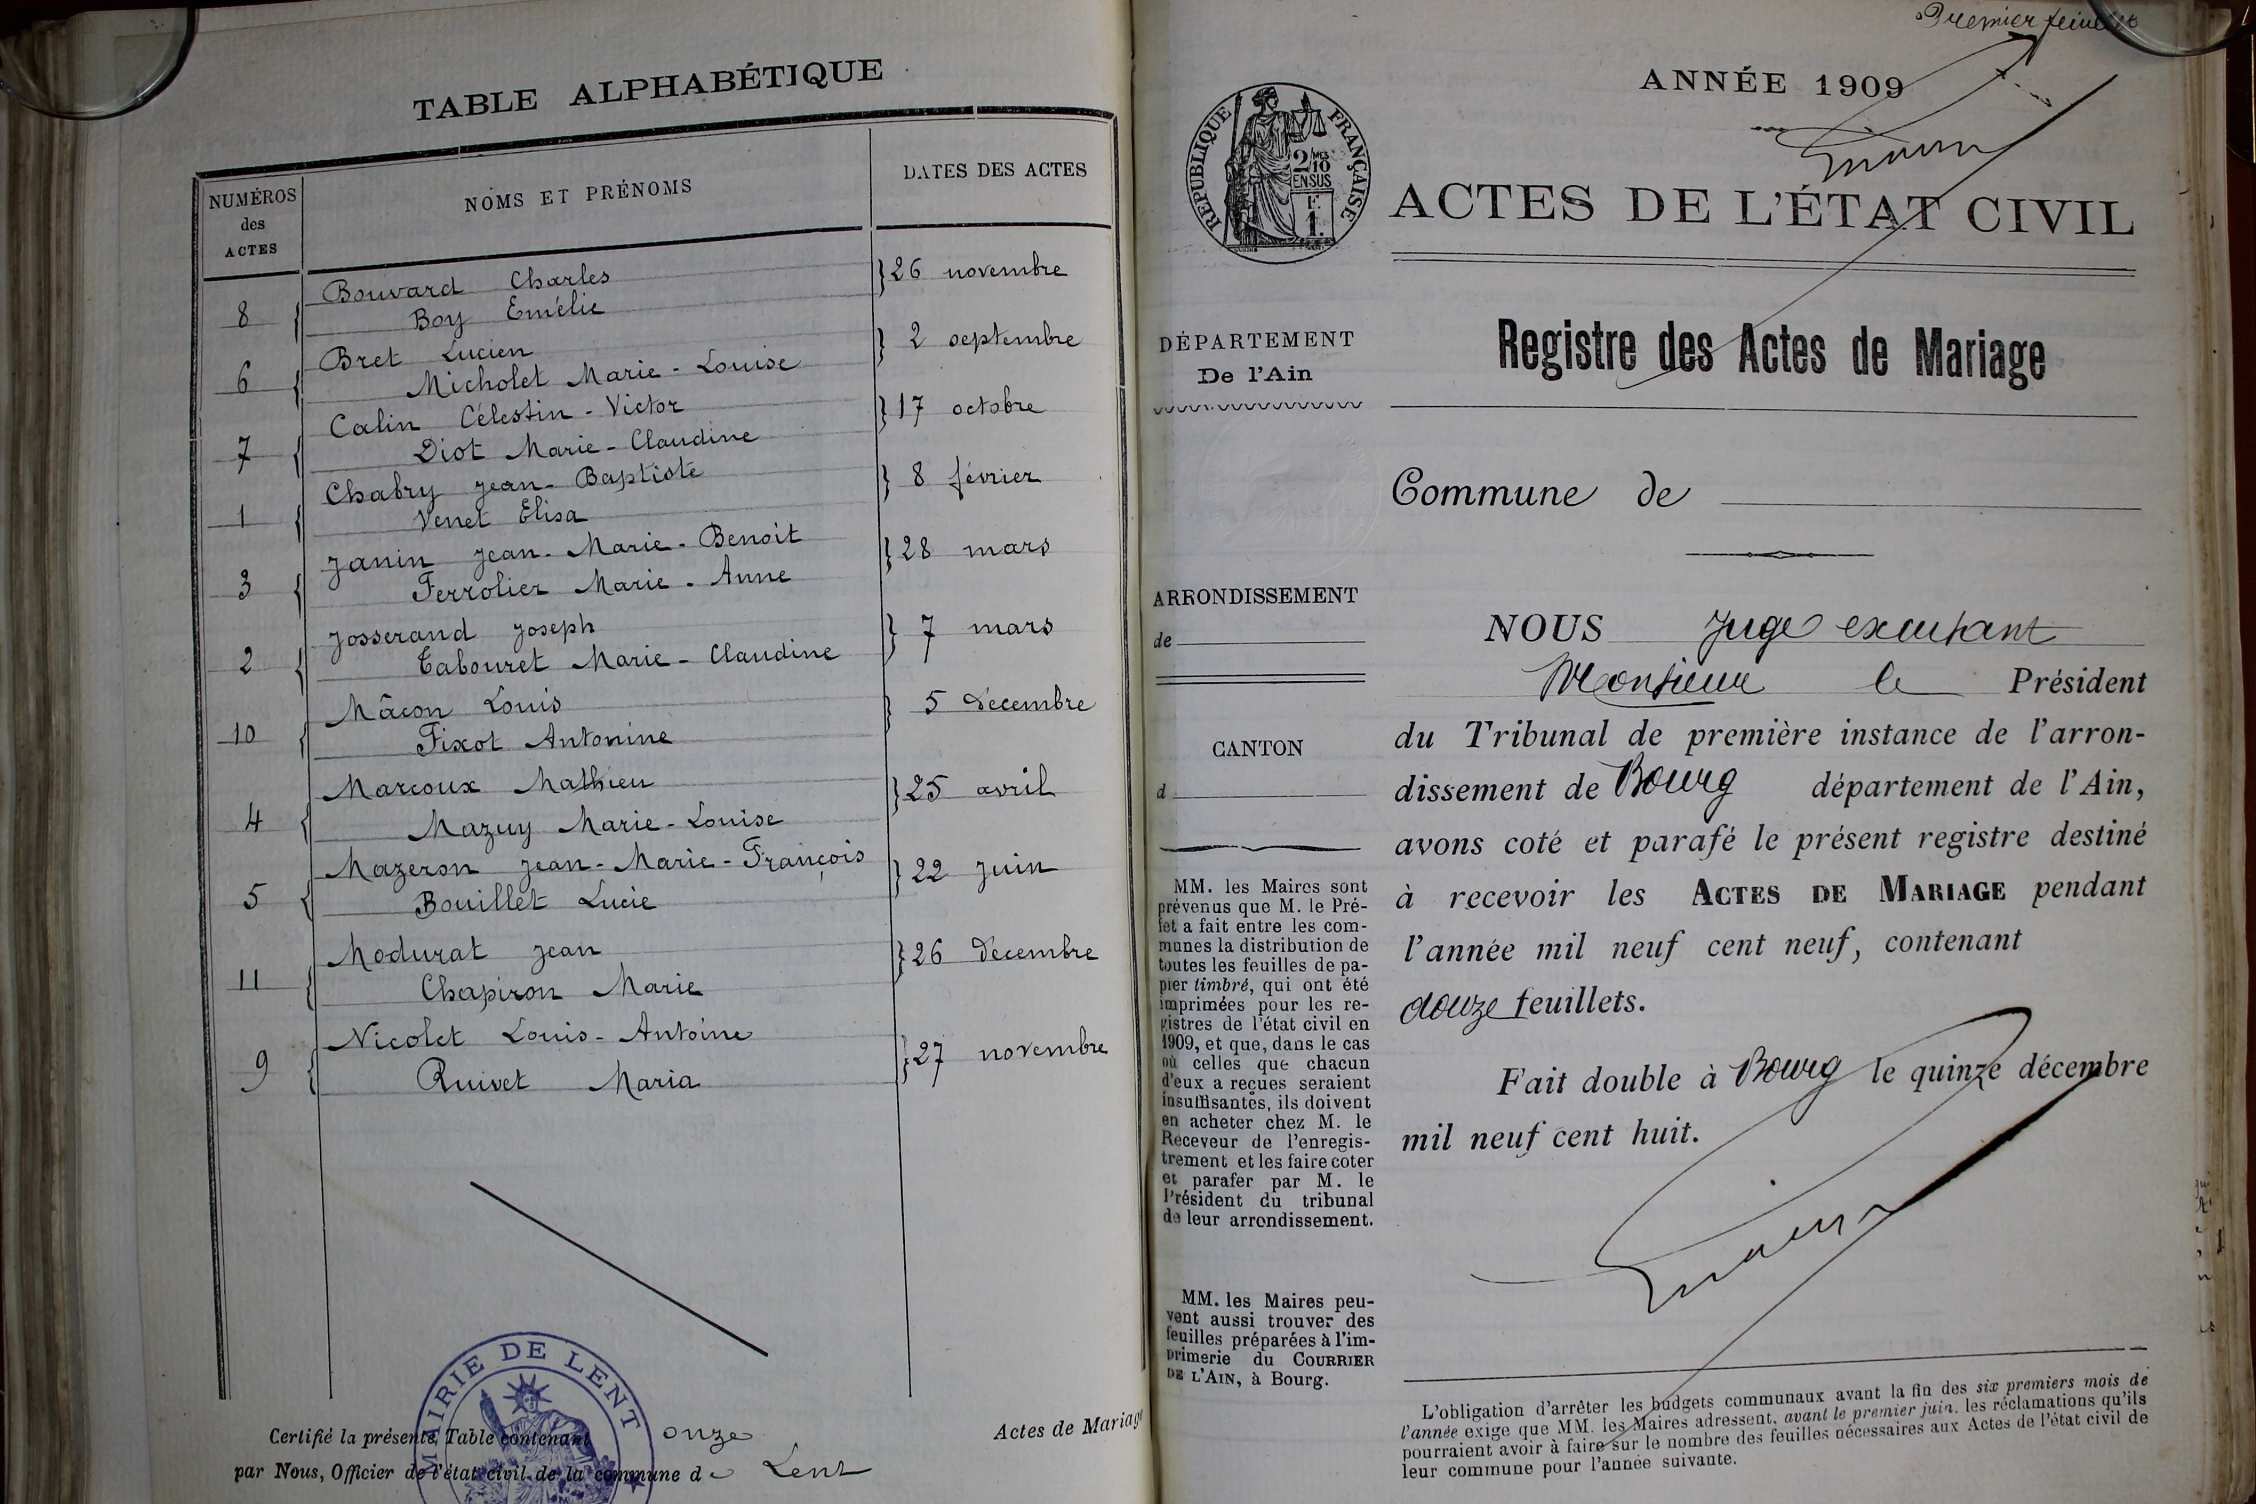 TABLE ALPHABÉTIQUE
NUMÉROS des ACTES
NOMS ET PRÉNOMS
DATES DES ACTES
8 Bouvard Charles 26 novembre
Boy Emélie
6 Bret Lucien 2 septembre
Micholet Marie-Louise
7 Calin Célestin-Victor 17 octobre
Diot Marie-Claudine
1 Chabry Jean-Baptiste 8 février
Venet Elisa
3 Janin Jean-Marie-Benoit 28 mars
Ferrolier Marie-Anne
2 Josserand Joseph 7 mars
Tabouret Marie-Claudine
10 Mâcon Louis 5 décembre
Fixot Antonine
4 Marcoux Mathieu 25 avril
Mazuy Marie-Louise
5 Mazeron Jean-Marie-François 22 juin
Bouillet Lucie
11 Modurat Jean 26 décembre
Chapiron Marie
9 Nicolet Louis-Antoine 27 novembre
Ruivet Maria
MAIRIE DE LENT
Certifié la présente Table contenant onze Actes de Mariage
par Nous, Officier de l'état civil de la commune de Lent
Premier feuillet
ANNÉE 1909
RÉPUBLIQUE FRANÇAISE
2/10
EN SUS
F.
1.
ACTES DE L'ÉTAT CIVIL
Registre des Actes de Mariage
DÉPARTEMENT
De l'Ain
ARRONDISSEMENT
de
CANTON
d
MM. les Maires sont
prévenus que M. le Pré-
fet a fait entre les com-
munes la distribution de
toutes les feuilles de pa-
pier timbré, qui ont été
imprimées pour les re-
gistres de l'état civil en
1909, et que, dans le cas
où celles que chacun
d'eux a reçues seraient
insuffisantes, ils doivent
en acheter chez M. le
Receveur de l'enregis-
trement et les faire coter
et parafer par M. le
Président du tribunal
de leur arrondissement.
MM. les Maires peu-
vent aussi trouver des
feuilles préparées à l'im-
primerie du COURRIER
DE L'AIN, à Bourg.
Commune de
NOUS Juge exerçant
Monsieur le Président
du Tribunal de première instance de l'arron-
dissement de Bourg département de l'Ain,
avons coté et parafé le présent registre destiné
à recevoir les ACTES DE MARIAGE pendant
l'année mil neuf cent neuf, contenant
douze feuillets.
Fait double à Bourg le quinze décembre
mil neuf cent huit.
L'obligation d'arrêter les budgets communaux avant la fin des six premiers mois de
l'année exige que MM. les Maires adressent, avant le premier juin, les réclamations qu'ils
pourraient avoir à faire sur le nombre des feuilles nécessaires aux Actes de l'état civil de
leur commune pour l'année suivante.